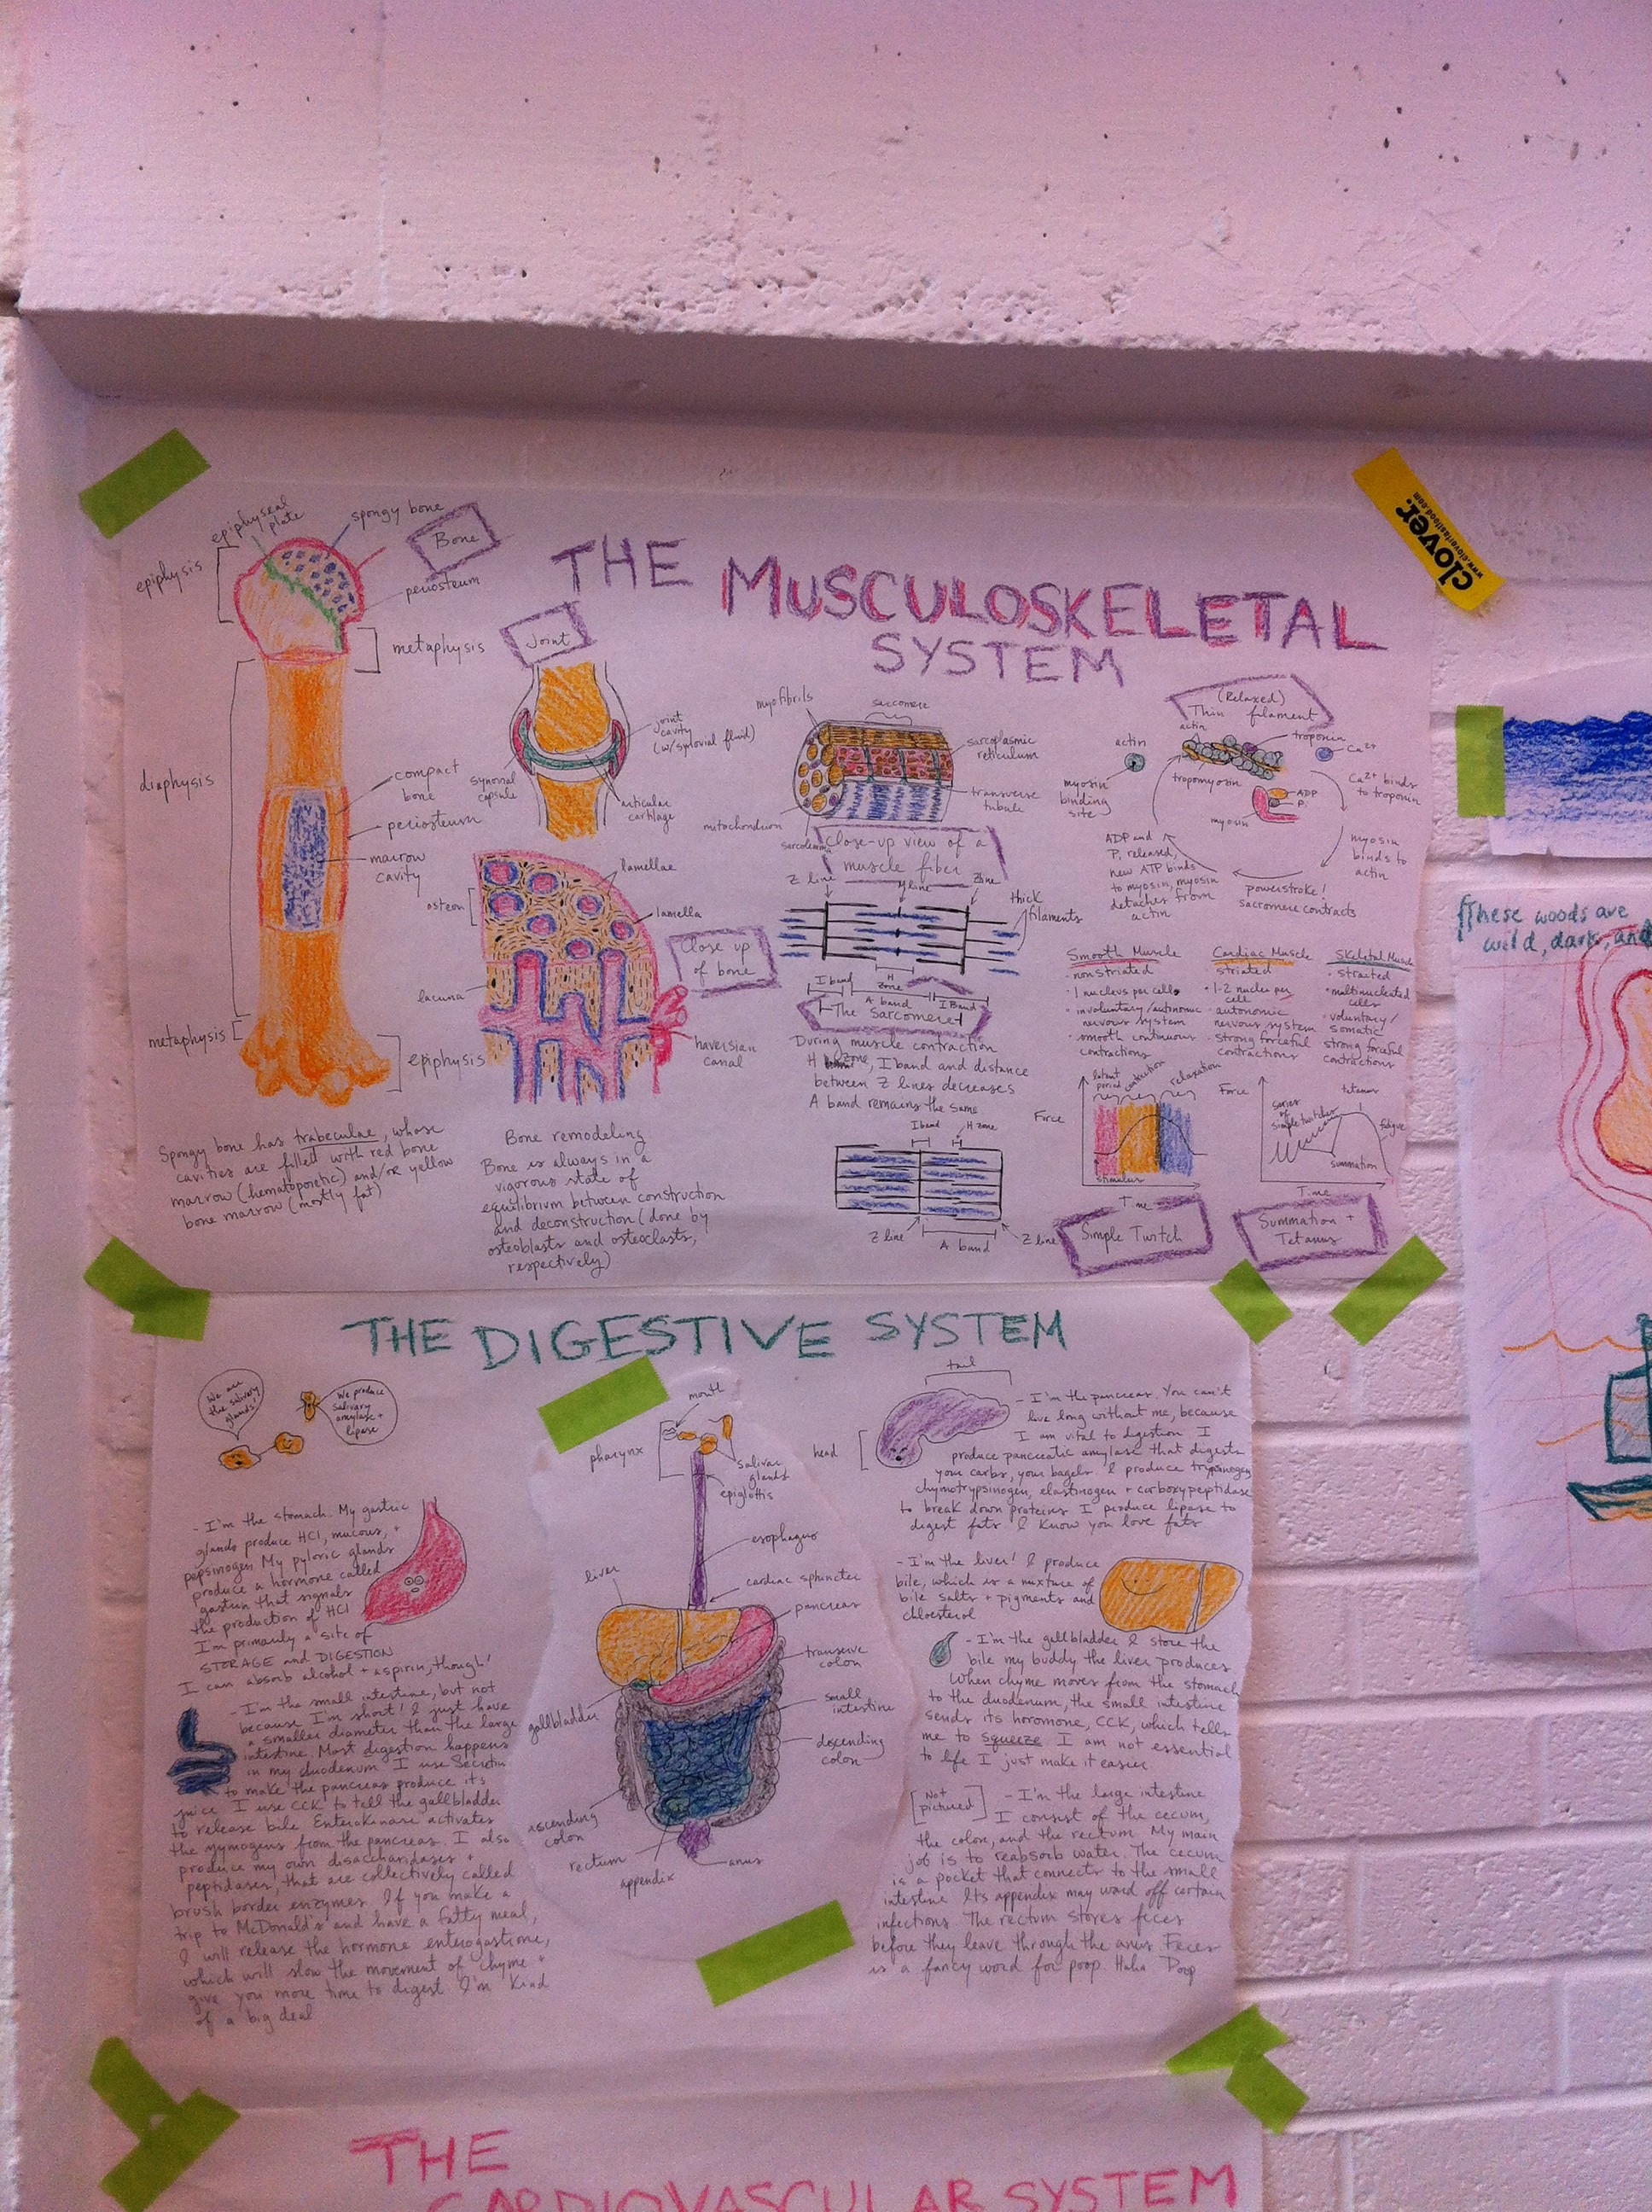 clover.
www.cloverfastfood.com
THE MUSCULOSKELETAL
SYSTEM
Bone
epiphyseal
plate
spongy bone
epiphysis
periosteum
metaphysis
diaphysis
compact
bone
periosteum
marrow
cavity
metaphysis
epiphysis
Spongy bone has trabeculae, whose
cavities are filled with red bone
marrow (hematopoietic) and/or yellow
bone marrow (mostly fat)
Joint
joint
cavity
(w/synovial fluid)
synovial
capsule
articular
cartilage
lamellae
osteon
lamella
Close up
of bone
lacuna
haversian
canal
Bone remodeling
Bone is always in a
vigorous state of
equilibrium between construction
and deconstruction (done by
osteoblasts and osteoclasts,
respectively)
myofibrils
sarcomere
sarcoplasmic
reticulum
transverse
tubule
mitochondrion
sarcolemma
Close-up view of a
muscle fiber
Z line
Mline
Zline
thick
filaments
I band
H
zone
A band
I Band
The Sarcomere
During muscle contraction
H zone, I band and distance
between Z lines decreases
A band remains the same
I band
H zone
Z line
A band
Z line
(Relaxed)
Thin filament
actin
troponin
Ca2+
actin
tropomyosin
myosin
binding
site
ADP
Pi
myosin
Ca2+ binds
to troponin
myosin
binds to
actin
powerstroke!
sacromere contracts
ADP and
Pi released,
new ATP binds
to myosin, myosin
detaches from
actin
Smooth Muscle
nonstriated
• 1 nucleus per cell
• involuntary/autonomic
nervous system
• smooth continuous
contractions
Cardiac Muscle
striated
• 1-2 nuclei per
cell
• autonomic
nervous system
• strong forceful
contractions
Skeletal Muscle
• multinucleated
cells
• voluntary/
somatic
strong forceful
contractions
latent
period
contraction
relaxation
Force
stimulus
Time
Simple Twitch
Force
series
of
simple twitches
tetanus
fatigue
summation
Time
Summation +
Tetanus
THE DIGESTIVE SYSTEM
We are
the salivary
glands!
We produce
salivary
amylase +
lipase
- I'm the stomach. My gastric
glands produce HCl, mucous, +
pepsinogen. My pyloric glands
produce a hormone called
gastrin that signals
the production of HCl
I'm primarily a site of
STORAGE and DIGESTION
I can absorb alcohol + aspirin, though!
- I'm the small intestine, but not
because I'm short! I just have
a smaller diameter than the large
intestine. Most digestion happens
in my duodenum. I use Secretin
to make the pancreas produce its
juice. I use CCK to tell the gallbladder
to release bile. Enterokinase activates
the zymogens from the pancreas. I also
produce my own disaccharidases +
peptidases, that are collectively called
brush border enzymes. If you make a
trip to McDonald's and have a fatty meal,
I will release the hormone enterogastrone,
which will slow the movement of chyme +
give you more time to digest. I'm kind
of a big deal
mouth
pharynx
salivary
glands
epiglottis
esophagus
liver
cardiac sphincter
pancreas
transverse
colon
small
intestine
gallbladder
descending
colon
ascending
colon
rectum
appendix
anus
tail
head
- I'm the pancreas. You can't
live long without me, because
I am vital to digestion. I
produce pancreatic amylase that digests
your carbs, your bagels. I produce trypsinogen,
chymotrypsinogen, elastinogen + carboxypeptidase
to break down proteins. I produce lipase to
digest fats. I know you love fats
- I'm the liver! I produce
bile, which is a mixture of
bile salts + pigments and
chloesterol
- I'm the gallbladder. I store the
bile my buddy the liver produces.
When chyme moves from the stomach
to the duodenum, the small intestine
sends its horomone, CCK, which tells
me to squeeze. I am not essential
to life. I just make it easier.
[Not
pictured]
- I'm the large intestine
I consist of the cecum,
the colon, and the rectum. My main
job is to reabsorb water. The cecum
is a pocket that connects to the small
intestine. Its appendix may ward off certain
infections. The rectum stores feces
before they leave through the anus. Feces
is a fancy word for poop. Haha Poop
THE
CARDIOVASCULAR SYSTEM
These woods are
wild, dark, and